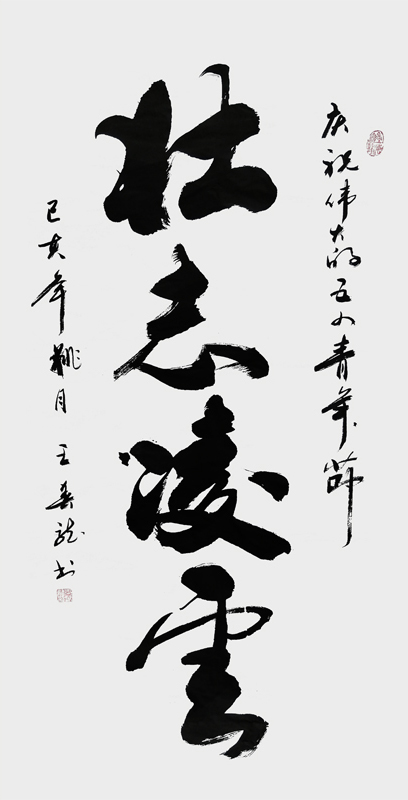 庆祝伟大的五四青年節
壮志凌雲
己亥年桃月 王春龙书